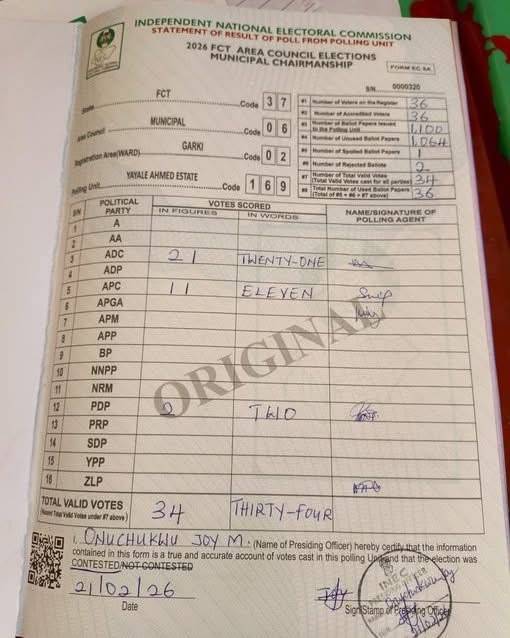 INDEPENDENT NATIONAL ELECTORAL COMMISSION
STATEMENT OF RESULT OF POLL FROM POLLING UNIT
2026 FCT AREA COUNCIL ELECTIONS
MUNICIPAL CHAIRMANSHIP
FORM EC 8A
S/N. 0000320
State FCT Code 3 7
Area Council MUNICIPAL Code 0 6
Registration Area(WARD) GARKI Code 0 2
Polling Unit YAYALE AHMED ESTATE Code 1 6 9
#1 Number of Voters on the Register 36
#2 Number of Accredited Voters 36
#3 Number of Ballot Papers Issued to the Polling Unit 1,100
#4 Number of Unused Ballot Papers 1,064
#5 Number of Spoiled Ballot Papers
#6 Number of Rejected Ballots 2
#7 Number of Total Valid Votes (Total Valid Votes cast for all parties) 34
#8 Total Number of Used Ballot Papers (Total of #5 + #6 + #7 above) 36
S/N POLITICAL PARTY VOTES SCORED NAME/SIGNATURE OF POLLING AGENT
IN FIGURES IN WORDS
1 A
2 AA
3 ADC 21 TWENTY-ONE
4 ADP
5 APC 11 ELEVEN
6 APGA
7 APM
8 APP
9 BP
10 NNPP
11 NRM
12 PDP 2 TWO
13 PRP
14 SDP
15 YPP
16 ZLP
ORIGINAL
TOTAL VALID VOTES 34 THIRTY-FOUR
(Record Total Valid Votes under #7 above)
I, ONUCHUKWU JOY M. (Name of Presiding Officer) hereby certify that the information
contained in this form is a true and accurate account of votes cast in this polling Unit and that the election was
CONTESTED/NOT CONTESTED
21/02/26
Date
Sign/Stamp of Presiding Officer
INEC